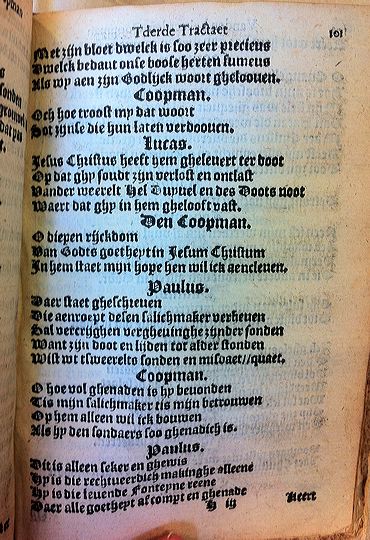 Tderde Tractaet 101
Met zijn bloet dwelck is soo zeer precieus
Dwelck bedaut onse boose herten fumeus
Als wy aen zijn Godlijck woort ghelooven.
Coopman.
Och hoe troost my dat woort
Sot zijnse die hun laten verdooven.
Lucas.
Jesus Christus heeft hem ghelevert ter doot
Op dat ghy soudt zijn verlost en ontlast
Vander weerelt Hel Duyvel en des Doots noot
Waert dat ghy in hem ghelooft vast.
Den Coopman.
O diepen rijckdom
Van Godts goetheyt in Jesum Christum
In hem staet mijn hope hen wil ick aencleven.
Paulus.
Daer staet gheschreven
Die aenroept desen salichmaker verheven
Sal vercrijghen vergheuinghe zijnder sonden
Want zijn doot en lijden tot alder stonden
Wist wt tsweerelts sonden en misdaet//quaet.
Coopman.
O hoe vol ghenaden is hy bevonden
Tis mijn salichmaker tis mijn betrouwen
Op hem alleen wil ick bouwen
Als hy den sondaers soo ghenadich is.
Paulus.
Dit is alleen seker en ghewis
Hy is die rechtveerdich makinghe alleene
Hy is die levende Fonteyne reene
Daer alle goetheyt af compt en ghenade
H iij Keert